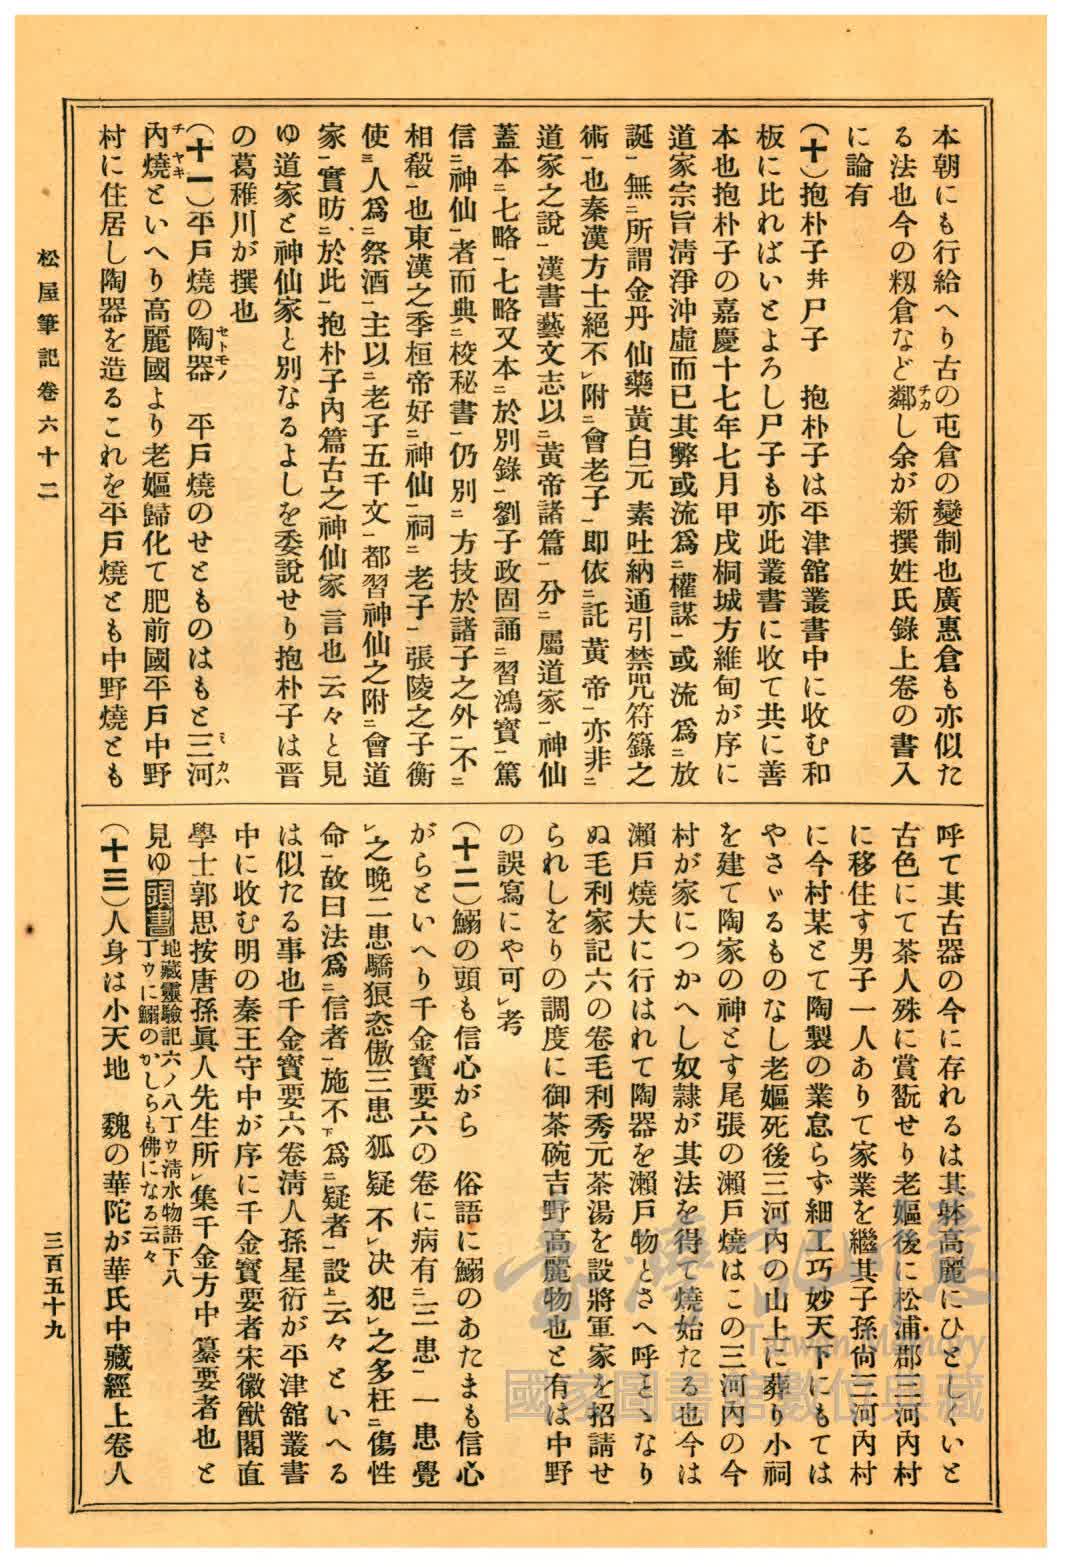 本朝にも行給へり古の屯倉の變制也廣惠倉も亦似た
る法也今の籾倉など鄰し余が新撰姓氏錄上卷の書入
に論有
(十)抱朴子幷尸子　抱朴子は平津舘叢書中に收む和
板に比ればいとよろし尸子も亦此叢書に收て共に善
本也抱朴子の嘉慶十七年七月甲戌桐城方維甸が序に
道家宗旨淸淨沖虛而已其弊或流爲二權謀一或流爲二放
誕一無二所謂金丹仙藥黃白元素吐納通引禁咒符籙之
術一也秦漢方士絕不レ附二會老子一即依二託黃帝一亦非二
道家之說一漢書藝文志以二黃帝諸篇一分二屬道家一神仙
蓋本二七略一七略又本二於別錄一劉子政固誦二習鴻寶一篤
信二神仙一者而典二校秘書一仍別二方技於諸子之外一不二
相殽一也東漢之季桓帝好二神仙一祠二老子一張陵之子衡
使三人爲二祭酒一主以二老子五千文一都習神仙之附二會道
家一實昉二於此一抱朴子內篇古之神仙家言也云々と見
ゆ道家と神仙家と別なるよしを委說せり抱朴子は晋
の葛稚川が撰也
(十一)平戶燒の陶器　平戶燒のせとものはもと三河
內燒といへり高麗國より老嫗歸化て肥前國平戶中野
村に住居し陶器を造るこれを平戶燒とも中野燒とも
呼て其古器の今に存れるは其躰高麗にひとしくいと
古色にて茶人殊に賞翫せり老嫗後に松浦郡三河內村
に移住す男子一人ありて家業を繼其子孫尙三河內村
に今村某とて陶製の業怠らず細工巧妙天下にもては
やさゞるものなし老嫗死後三河內の山上に葬り小祠
を建て陶家の神とす尾張の瀨戶燒はこの三河內の今
村が家につかへし奴隷が其法を得て燒始たる也今は
瀨戶燒大に行はれて陶器を瀨戶物とさへ呼とゝなり
ぬ毛利家記六の卷毛利秀元茶湯を設將軍家を招請せ
られしをりの調度に御茶碗吉野高麗物也と有は中野
の誤寫にや可レ考
(十二)鰯の頭も信心がら　俗語に鰯のあたまも信心
がらといへり千金寶要六の卷に病有二三患一一患覺
レ之晩二患驕狠恣傲三患狐疑不レ决犯レ之多枉二傷性
命一故曰法爲二信者一施不下爲二疑者一設上云々といへる
は似たる事也千金寶要六卷淸人孫星衍が平津舘叢書
中に收む明の秦王守中が序に千金寶要者宋徽猷閣直
學士郭思按唐孫眞人先生所レ集千金方中纂要者也と
見ゆ頭書地藏靈驗記六ノ八丁ゥ淸水物語下八
丁ゥに鰯のかしらも佛になる云々
(十三)人身は小天地　魏の華陀が華氏中藏經上卷人
松屋筆記卷六十二
三百五十九
臺灣記憶
Taiwan Memory
國家圖書館數位典藏